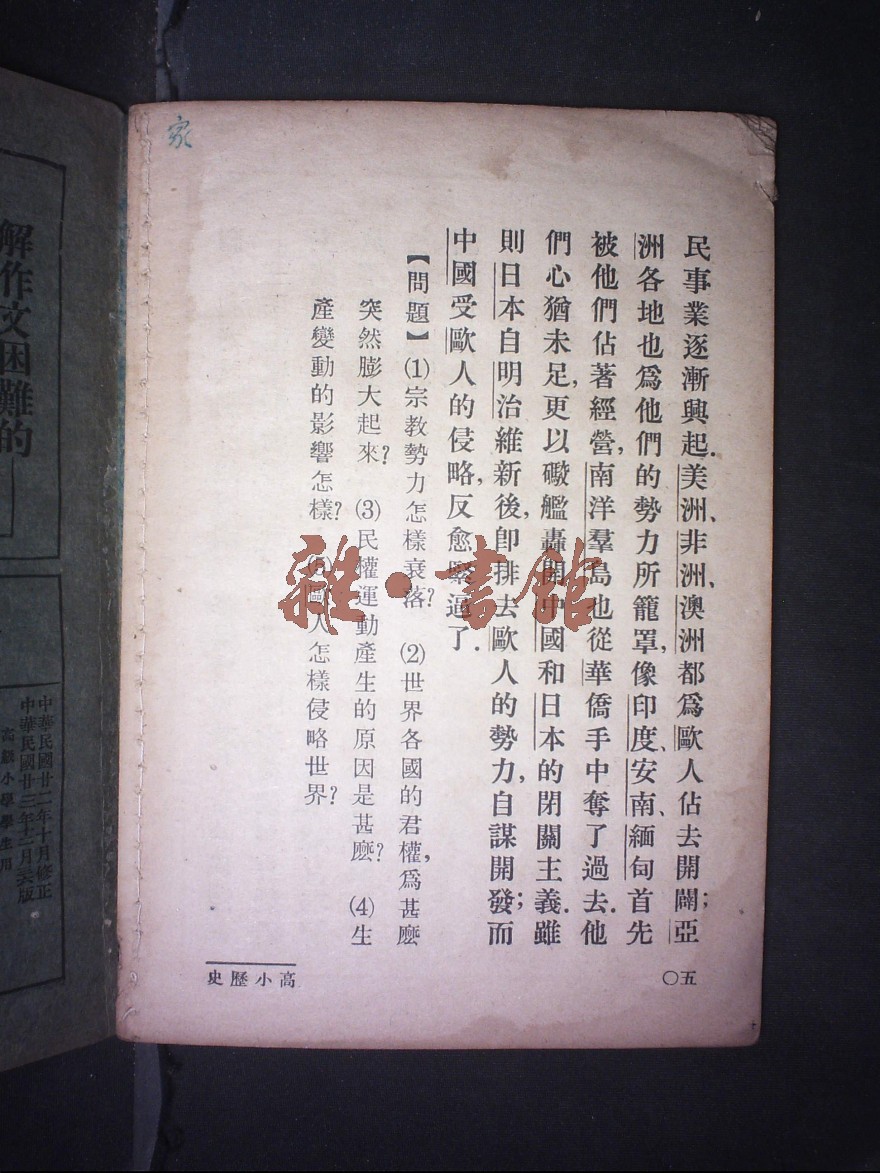 家
民事業逐漸興起．美洲、非洲、澳洲都爲歐人佔去開闢；亞
洲各地也爲他們的勢力所籠罩，像印度、安南、緬甸首先
被他們佔著經營，南洋羣島也從華僑手中奪了過去．他
們心猶未足，更以礮艦轟開中國和日本的閉關主義．雖
則日本自明治維新後，卽排去歐人的勢力，自謀開發；而
中國受歐人的侵略，反愈緊逼了．
【問題】⑴宗教勢力怎樣衰落？　⑵世界各國的君權，爲甚麼
突然膨大起來？　⑶民權運動產生的原因是甚麼？　⑷生
產變動的影響怎樣？　⑸歐人怎樣侵略世界？
高小歷史
五〇
雜·書館
解作文困難的
中華民國廿二年十月修正
中華民國廿三年十二月六版
高級小學學生用